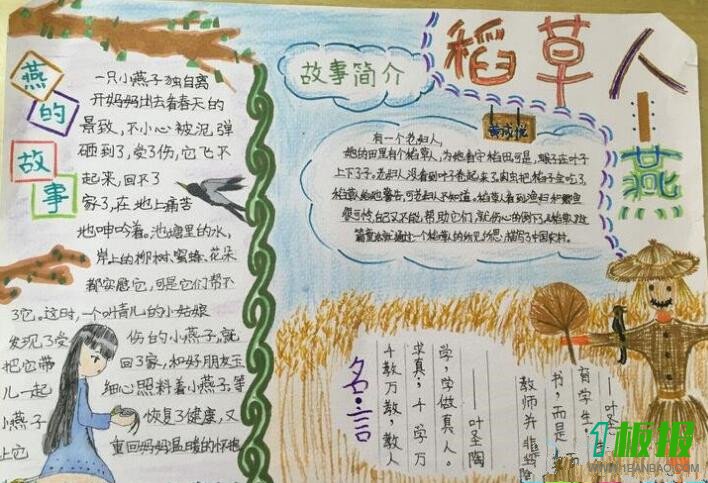 稻草人
燕
燕的故事
一只小燕子独自离
开妈妈出去看春天的
景致，不小心被泥弹
砸到了，受了伤，它飞不
起来，回不了
家了，在地上痛苦
地呻吟着。池塘里的水，
岸上的柳树、蜜蜂、花朵
都实感它，可是它们帮不
了它。这时，一个叫青儿的小姑娘
发现了受伤的小燕子，就
把它带回了家，和好朋友玉
儿一起细心照料着小燕子，等
小燕子恢复了健康，又
重回妈妈温暖的怀抱
故事简介
有一个老妇人，
她的田里有个稻草人，为她看守稻田可是，蛾子在叶子
上下了子。
稻草人看到渔妇和鲫鱼
很可怜，自己又不能帮助它们，就伤心的倒下了
篇童话就通过一个稻草人的所见所思，描写了中国农村。
名言
千教万教，教人
求真；千学万
学，学做真人。
——叶圣陶
教师并非
书，而是
育学生。
——叶圣
1板报
WWW.1BANBAO.COM